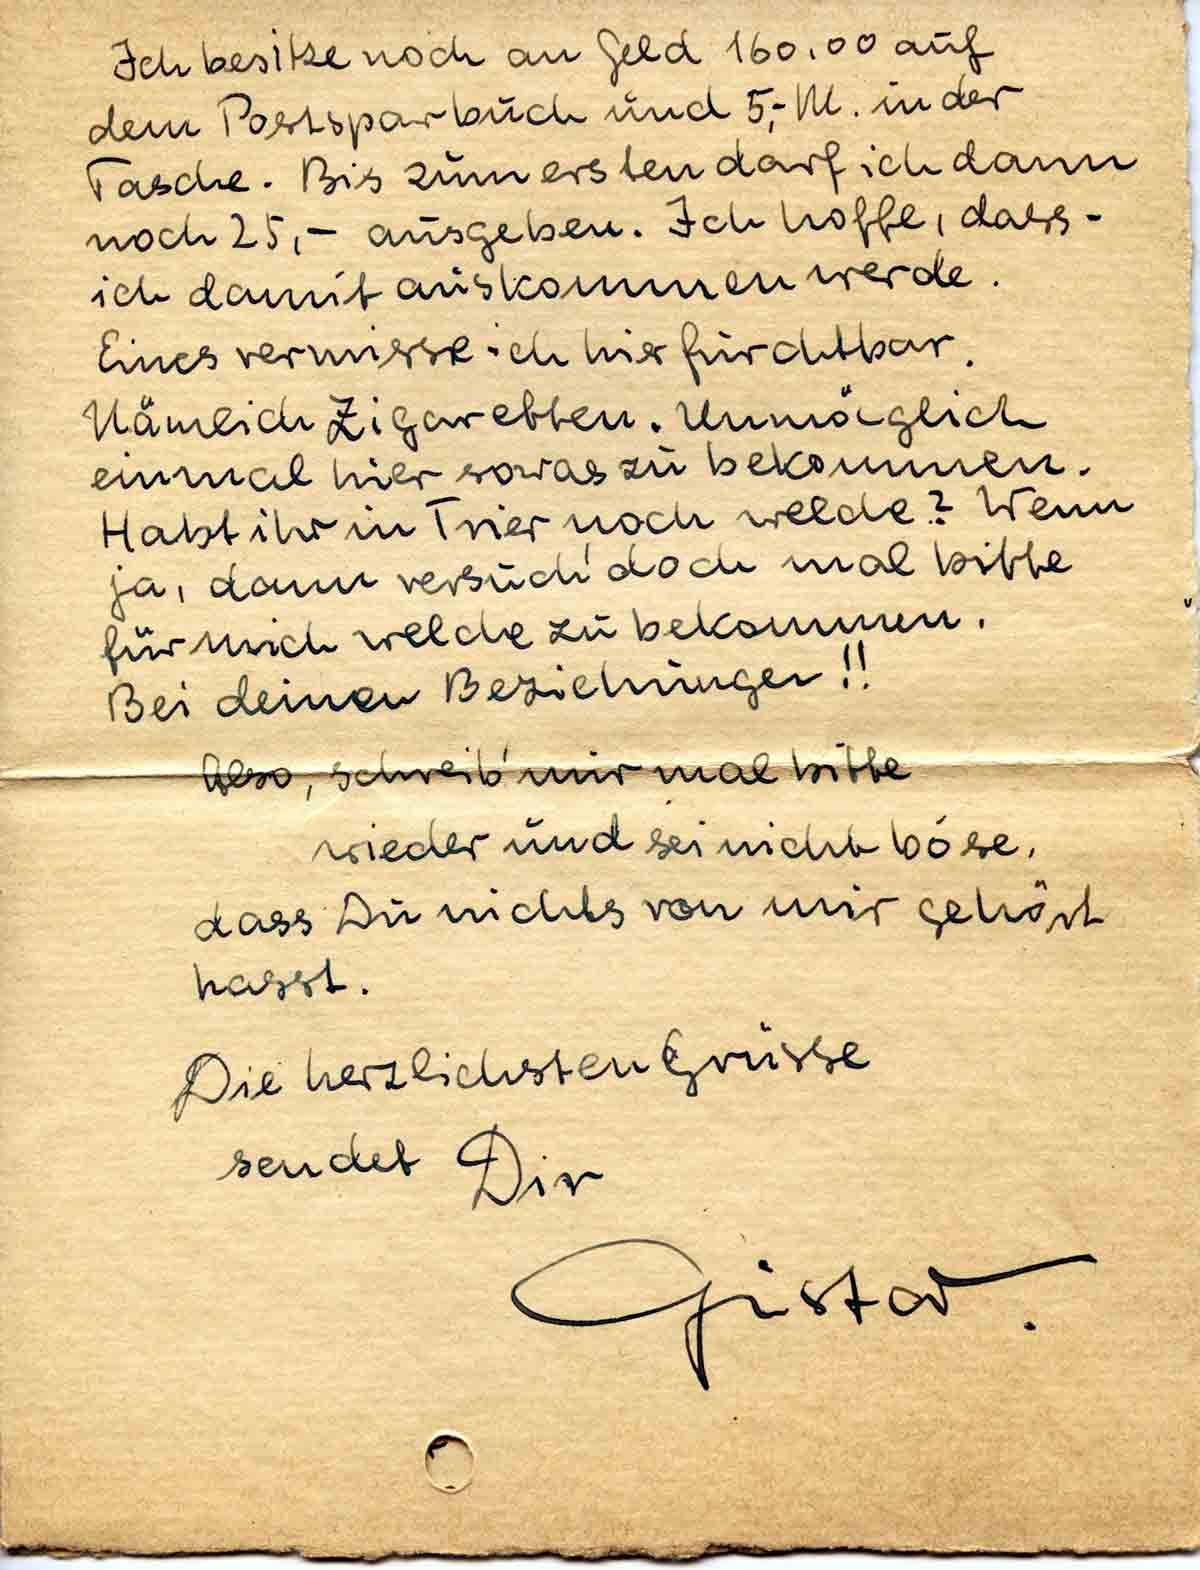 Ich besitze noch an Geld 160,00 auf
dem Postsparbuch und 5,- M. in der
Tasche. Bis zum ersten darf ich dann
noch 25,- ausgeben. Ich hoffe, dass
ich damit auskommen werde.
Eines vermisse ich hier furchtbar.
Nämlich Zigaretten. Unmöglich
einmal hier sowas zu bekommen.
Habt ihr in Trier noch welche? Wenn
ja, dann versuch' doch mal bitte
für mich welche zu bekommen.
Bei deinen Beziehungen!!
Also, schreib' mir mal bitte
wieder und sei nicht böse,
dass Du nichts von mir gehört
hasst.
Die herzlichsten Grüsse
sendet Dir
Gustav.